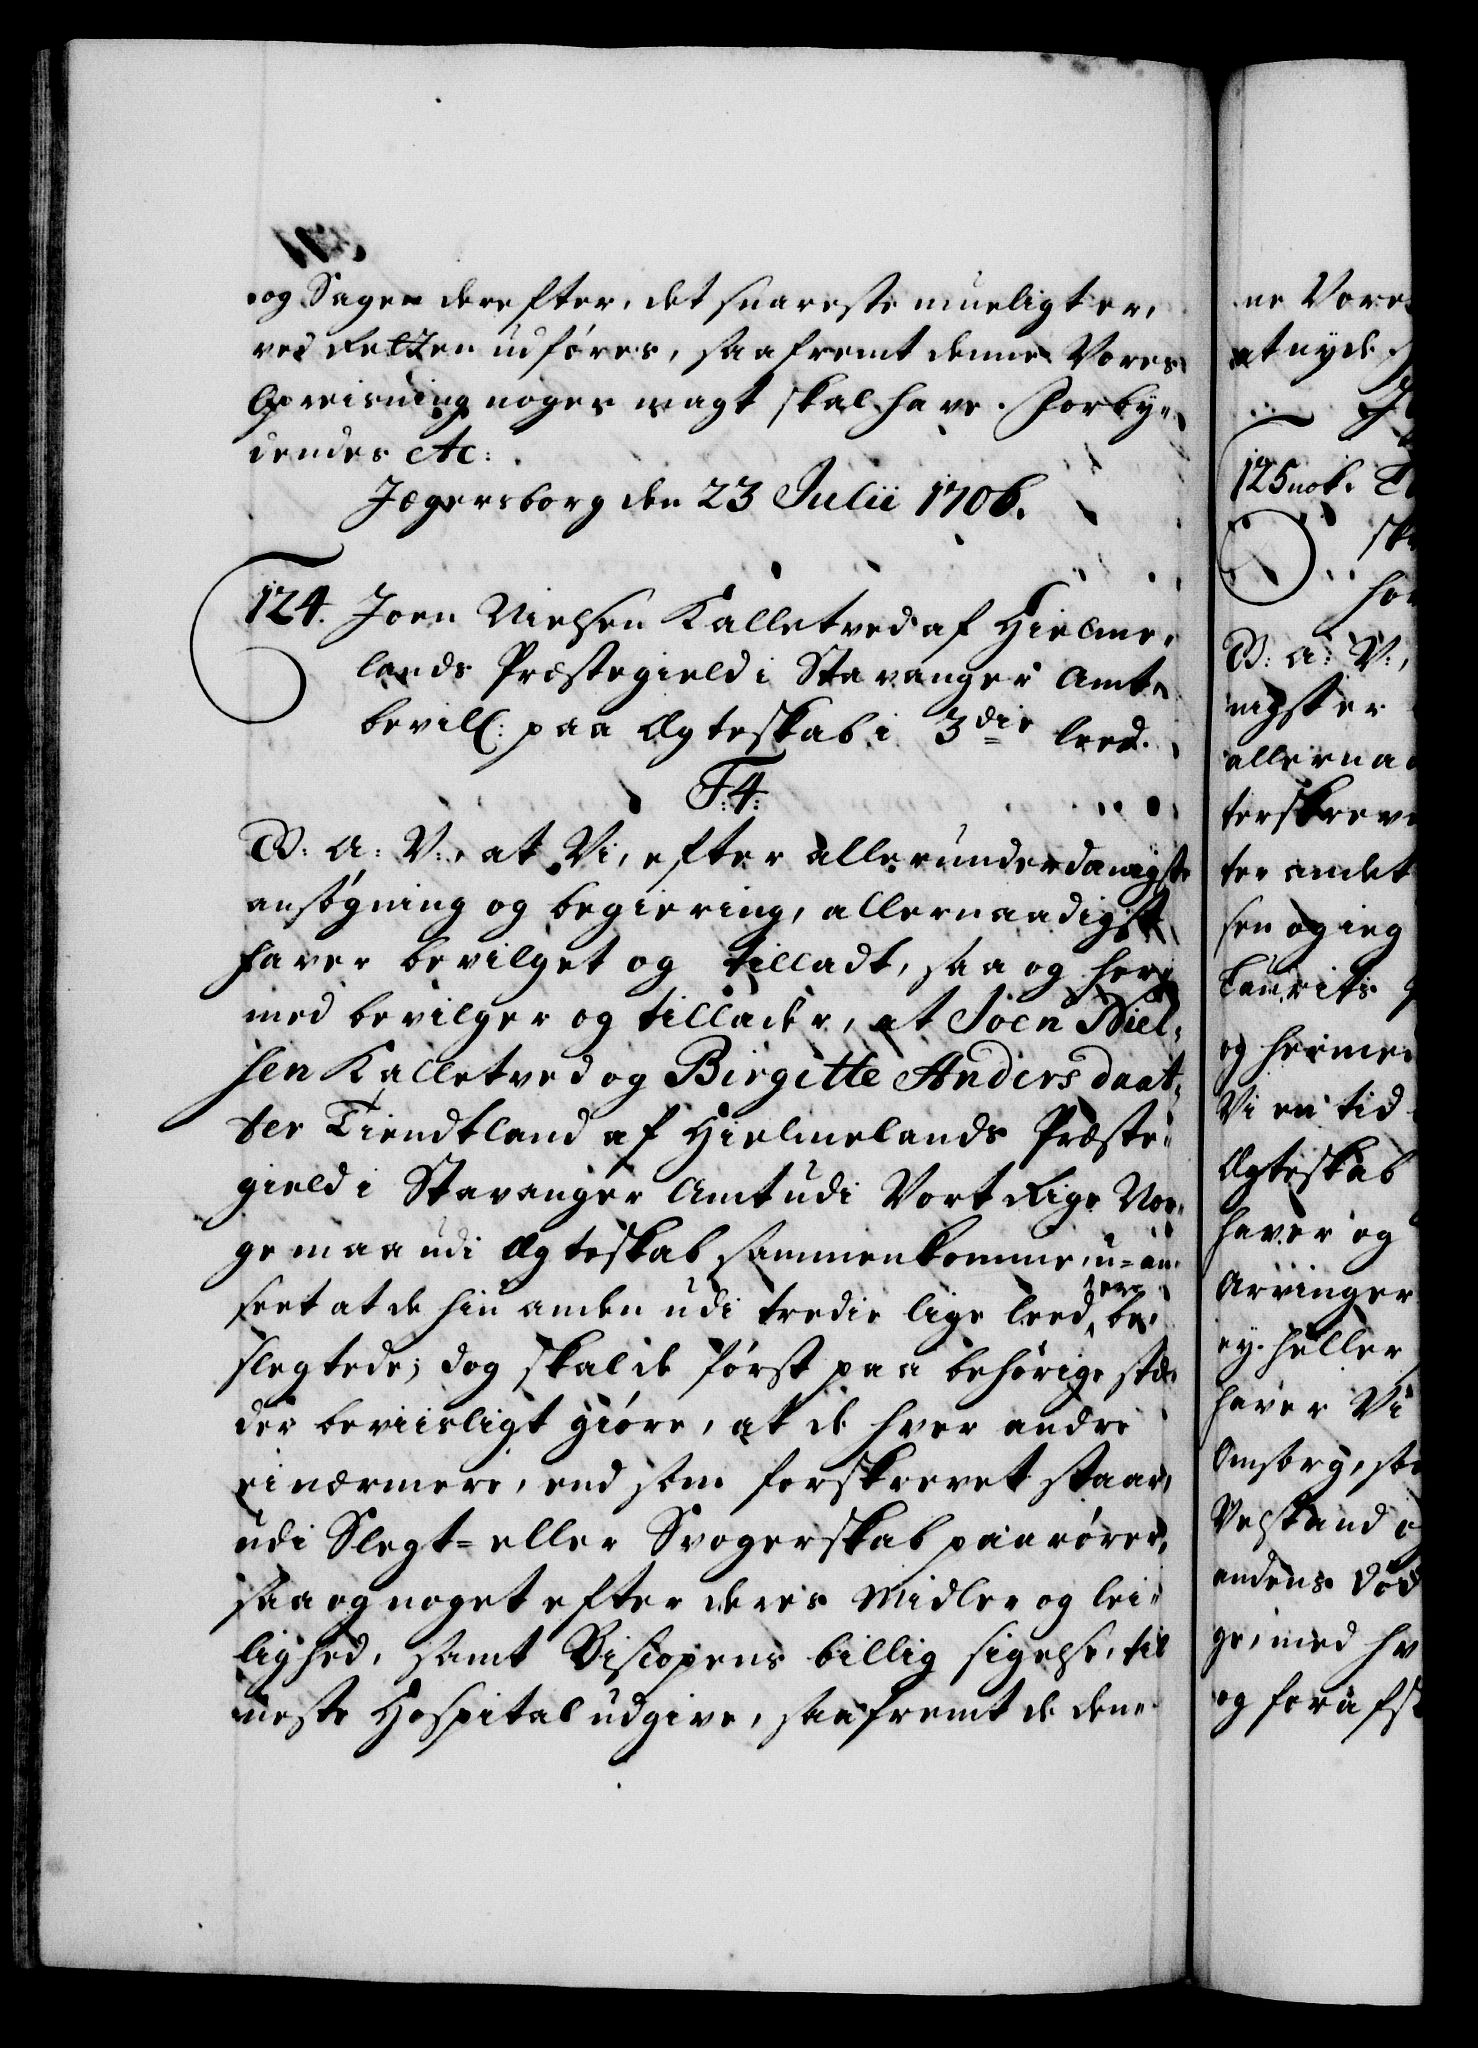 og Sagen derefter, det snareste mueligt er,
ved Retten udføres, saafremt denne Vores
Opreisning nogen magt skal have. Forby-
dendes etc:
Jægersborg den 23 Julii 1706.
124. Joen Nielsen Kalletved af Hielme-
lands Præstegield i Stavanger Amt
bevill: paa Ægteskab i 3die leed.
F:4:
G: A: V:, at Vi, efter allerunderdanigste
ansøgning og begiering, allernaadigst
haver bevilget og tilladt, saa og her-
med bevilger og tillader, at Joen Niel-
sen Kalletved og Birgitte Andersdaat-
ter Tiendtland af Hielmelands Præste-
gield i Stavanger Amt udi Vort Rige Nor-
ge maa udi Ægteskab sammenkomme, u-an-
seet at de hin anden udi tredie lige leed ere be-
slegtede; dog skal de først paa behørige stæ-
der beviisligt giøre, at de hver andre
ei nærmere, end som forskrevet staar,
udi Slegt- eller Svogerskab paarører,
saa og noget efter deres Midler og lei-
lighed, samt Biscopens billig sigelse, til
neste Hospital udgive, saafremt de den-
ne Vores
at nyde
125 not.
G: A: V:,
nigster
allernaa
terskreve
ter andet
sen og ieg
Laurits
og herme
Vi en tid
Ægteskab
haver og
Arvinger
ey heller
haver Vi
Omsorg, so
Velstand o
andens Død
ge, med hv
og foruf